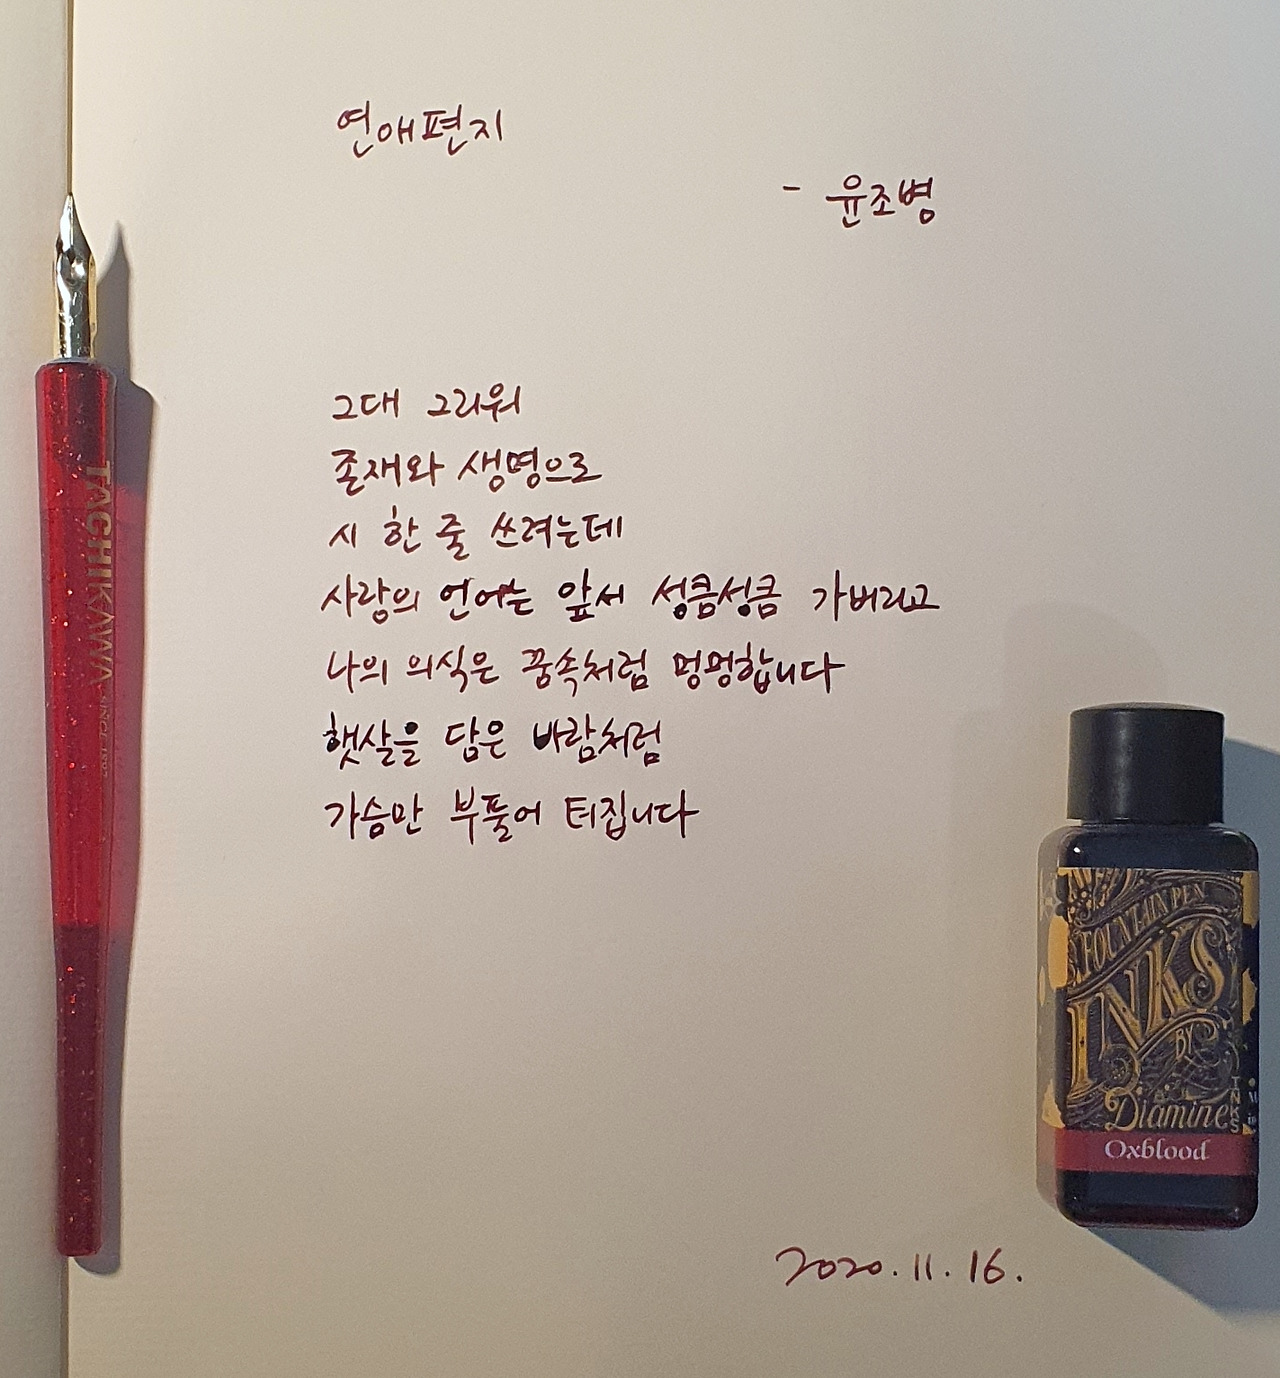 연애편지
- 윤조병
그대 그리워
존재와 생명으로
시 한 줄 쓰려는데
사랑의 언어는 앞서 성큼성큼 가버리고
나의 의식은 꿈속처럼 멍멍합니다
햇살을 담은 바람처럼
가슴만 부풀어 터집니다
2020.11.16.
TACHIKAWA SINCE
FOUNTAIN PEN
INKS
BY
Diamine
INKS
Oxblood